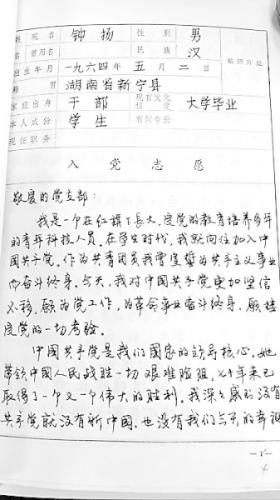 姓名 钟扬 性别 男
曾用名 民族 汉 贴照片处
出生年月 一九六四年 五 月 二 日
籍贯 湖南省新宁县
家庭出身 干部 现有文化程度 大学毕业
本人成份 学生 有何专长
现任职务
入 党 志 愿
敬爱的党支部:
我是一个在红旗下长大,受党的教育培养多年
的青年科技人员,在学生时代,我就向往加入中
国共产党。作为共青团员我曾宣誓为共产主义事业
而奋斗终身。今天,我对中国共产党更加坚信
不移,愿为党工作,为革命事业奋斗终身,愿接
受党的一切考验。
中国共产党是我们国家的领导核心,她
带领中国人民战胜一切艰难险阻,七十年来已
取得了一个又一个伟大的胜利,我深深感到没有
共产党就没有新中国,也没有我们今天的幸福